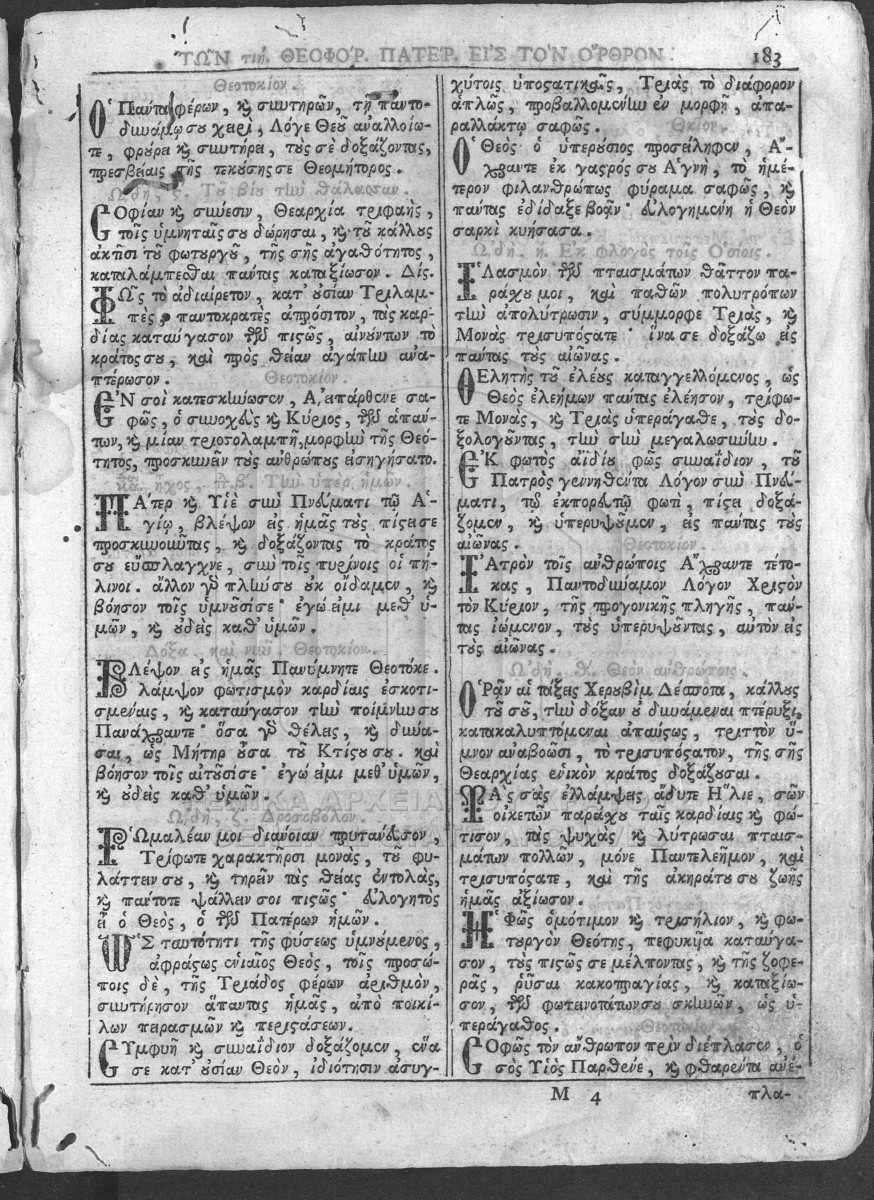 ΤΩ͂Ν τιή. ΘΕΟΦΌΡ. ΠΑΤΈΡ. ΕΙΣ ΤῸΝ ὌΡΘΡΟΝ. 183
Θεοτοκίον.
Ὁ Πάντα φέρων, κ̀ σωτηρῶν, τῇ παντο-
δυνάμῳ σου χειρί, Λόγε Θεοῦ ἀναλλοίω-
τε, φρούρει κ̀ σωτήρει, τοὺς σὲ δοξάζοντας,
πρεσβείαις τῆς τεκούσης σε Θεομήτορος.
Ὠδὴ, ς. Τοῦ βίου τὴν θάλασσαν.
ΣΟφίαν κ̀ σύνεσιν, Θεαρχία τριφαὴς,
τοῖς ὑμνηταῖς σου δώρησαι, κ̀ τοῦ κάλλους
ἀκτῖσι τοῦ φωτουργοῦ, τῆς σῆς ἀγαθότητος,
καταλάμπεσθαι πάντας καταξίωσον. Δίς.
ΦΩ͂ς τὸ ἀδιαίρετον, κατ' οὐσίαν Τριλαμ-
πὲς, παντοκρατὲς ἀπρόσιτον, τὰς καρ-
δίας καταύγασον τῶν πιστῶς, αἰνούντων τὸ
κράτος σου, καὶ πρὸς θείαν ἀγάπην ἀνα-
πτέρωσον.
Θεοτοκίον.
ἘΝ σοὶ κατεσκήνωσεν, Ἀειπάρθενε σα-
φῶς, ὁ συνοχεὺς κ̀ Κύριος, τῶν ἁπάν-
των, κ̀ μίαν τρισσολαμπῆ, μορφὴν τῆς Θεό-
τητος, προσκυνεῖν τοὺς ἀνθρώπους εἰσηγήσατο.
ἦχος, π. β. Τὴν ὑπὲρ ἡμῶν.
ΠΆτερ κ̀ Υἱὲ σὺν Πνεύματι τῷ Ἁ-
γίῳ, βλέψον εἰς ἡμᾶς τοὺς πίστει σε
προσκυνοῦντας, κ̀ δοξάζοντας τὸ κράτος
σου εὔσπλαγχνε, σὺν τοῖς πυρίνοις οἱ πή-
λινοι. ἄλλον γὰρ πλήν σου οὐκ οἴδαμεν, κ̀
βόησον τοῖς ὑμνοῦσί σε· ἐγώ εἰμι μεθ' ὑ-
μῶν, κ̀ οὐδεὶς καθ' ὑμῶν.
Δόξα, καὶ νῦν. Θεοτοκίον.
ΒΛέψον εἰς ἡμᾶς Πανύμνητε Θεοτόκε.
λάμψον φωτισμὸν καρδίαις ἐσκοτι-
σμέναις, κ̀ καταύγασον τὴν ποίμνην σου
Πανάχραντε· ὅσα γὰρ θέλεις, κ̀ δύνα-
σαι, ὡς Μήτηρ οὖσα τοῦ Κτίστου σου. καὶ
βόησον τοῖς αἰτοῦσί σε· ἐγώ εἰμι μεθ' ὑμῶν,
κ̀ οὐδεὶς καθ' ὑμῶν.
Ὠδὴ, ζ. Δροσοβόλον.
ῬΩμαλέαν μοι διάνοιαν πρυτάνευσον,
Τρίφωτε χαρακτῆρσι μονὰς, τοῦ φυ-
λάττειν σου, κ̀ τηρεῖν τὰς θείας ἐντολὰς,
κ̀ πάντοτε ψάλλειν σοι πιστῶς· Εὐλογητὸς
εἶ ὁ Θεὸς, ὁ τῶν Πατέρων ἡμῶν.
ὩΣ ταυτότητι τῆς φύσεως ὑμνούμενος,
ἀφράστως ἑνιαῖος Θεὸς, τοῖς προσώ-
ποις δὲ, τῆς Τριάδος φέρων ἀριθμὸν,
συντήρησον ἅπαντας ἡμᾶς, ἀπὸ ποικί-
λων πειρασμῶν κ̀ περιστάσεων.
ΣΥμφυῆ κ̀ συναΐδιον δοξάζομεν, ἕνα
σε κατ' οὐσίαν Θεὸν, ἰδιότησιν ἀσυγ-
χύτοις ὑποστατικαῖς, Τριὰς τὸ διάφορον
ἁπλῶς, προβαλλομένην ἐν μορφῇ, ἀπα-
ραλλάκτῳ σαφῶς.
Θκίον.
Ὁ Θεὸς ὁ ὑπερούσιος προσείληφεν, Ἄ-
χραντε ἐκ γαστρός σου Ἁγνὴ, τὸ ἡμέ-
τερον φιλανθρώπως φύραμα σαφῶς, κ̀
πάντας ἐδίδαξε βοᾶν· Εὐλογημένη ἡ Θεὸν
σαρκὶ κυήσασα.
Ὠδὴ. ή. Ἐκ φλογὸς τοῖς Ὁσίοις.
ἹΛασμὸν τῶν πταισμάτων θᾶττον πα-
ράσχου μοι, καὶ παθῶν πολυτρόπων
τὴν ἀπολύτρωσιν, σύμμορφε Τριὰς, κ̀
Μονὰς τρισυπόστατε· ἵνα σε δοξάζω εἰς
πάντας τοὺς αἰῶνας.
ΘΕλητὴς τοῦ ἐλέους καταγγελλόμενος, ὡς
Θεὸς ἐλεήμων πάντας ἐλέησον, τρίφω-
τε Μονὰς, κ̀ Τριὰς ὑπεράγαθε, τοὺς δο-
ξολογοῦντας, τὴν σὴν μεγαλωσύνην.
ἘΚ φωτὸς ἀϊδίου φῶς συναΐδιον, τοῦ
Πατρὸς γεννηθέντα Λόγον σὺν Πνεύ-
ματι, τῷ ἐκπορευτῷ φωτὶ, πίστει δοξά-
ζομεν, κ̀ ὑπερυψοῦμεν, εἰς πάντας τοὺς
αἰῶνας.
Θεοτοκίον.
ἸΑτρὸν τοῖς ἀνθρώποις Ἄχραντε τέτο-
κας, Παντοδύναμον Λόγον Χριστὸν
τὸν Κύριον, τῆς προγονικῆς πληγῆς, πάν-
τας ἰώμενον, τοὺς ὑπερυψοῦντας, αὐτὸν εἰς
τοὺς αἰῶνας.
Ὠδὴ, θ. Θεὸν ἀνθρώποις.
ὉΡᾶν αἱ τάξεις Χερουβὶμ Δέσποτα, κάλλους
τοῦ σοῦ, τὴν δόξαν οὐ δυνάμεναι πτέρυξι,
κατακαλυπτόμεναι ἀπαύστως, τριττὸν ὕ-
μνον ἀναβοῶσι, τὸ τρισυπόστατον, τῆς σῆς
Θεαρχίας ἑνικὸν κράτος δοξάζουσαι.
ΤΑῖς σαῖς ἐλλάμψεσι ἄδυτε Ἥλιε, σῶν
οἰκετῶν παράσχου ταῖς καρδίαις κ̀ φώ-
τισον, τὰς ψυχὰς κ̀ λύτρωσαι πταισ-
μάτων πολλῶν, μόνε Παντελεῆμον, καὶ
τρισυπόστατε, καὶ τῆς ἀκηράτου σου ζωῆς
ἡμᾶς ἀξίωσον.
Ἡ Φῶς ὁμότιμον κ̀ τρισήλιον, κ̀ φω-
τουργὸν Θεότης, πεφυκυῖα καταύγα-
σον, τοὺς πιστῶς σε μέλποντας, κ̀ τῆς ζοφε-
ρᾶς, ῥῦσαι κακοπραγίας, κ̀ καταξίω-
σον, τῶν φωτεινοτάτων σου σκηνῶν, ὡς ὑ-
περάγαθος.
Θεοτοκίον.
ΣΟφῶς τὸν ἄνθρωπον πρὶν διέπλασεν, ὁ
σὸς Υἱὸς Παρθένε, κ̀ φθαρέντα ἀνέ-
Μ 4 πλα-